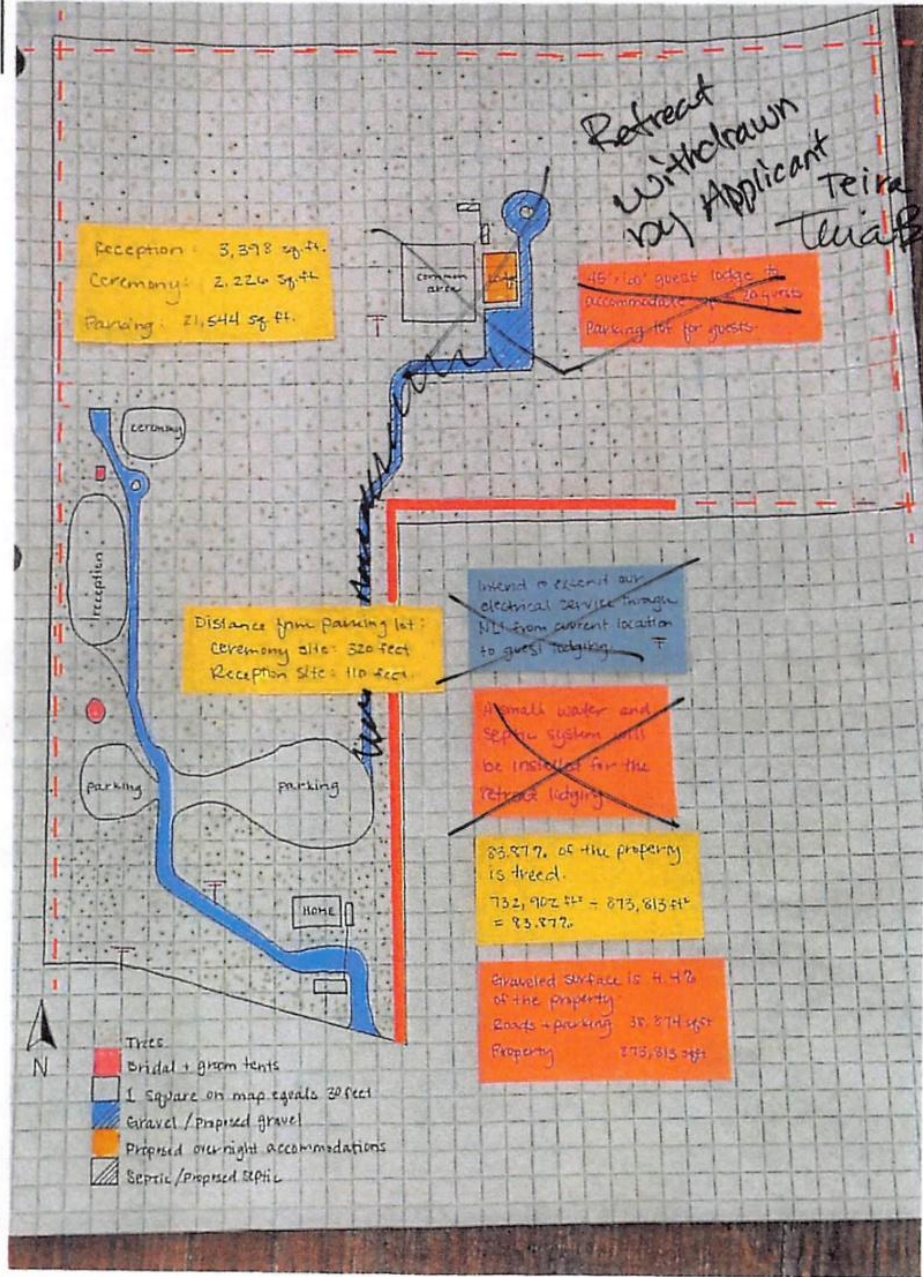 Retreat
Withdrawn
by Applicant
Teira
Reception: 3,398 sq.ft.
Ceremony: 2,226 sq.ft
Parking: 21,544 sq ft.
common
area
guest lodge to
accommodate 20 guests
Parking lot for guests.
ceremony
reception
Distance from parking lot:
Ceremony site: 320 feet
Reception site: 110 feet.
Intend to extend our
electrical service through
NLI from current location
to guest lodging.
A small water and
septic system will
be installed for the
retreat lodging
parking
parking
83.87% of the property
is treed.
732,902 ft² ÷ 873,813 ft²
= 83.87%
HOME
Graveled surface is 4.4%
of the property
Roads + parking 38,874 sqft
Property 873,813 sqft
N
Trees
Bridal + groom tents
1 square on map equals 30 feet
Gravel / Proposed gravel
Proposed overnight accommodations
Septic / Proposed septic